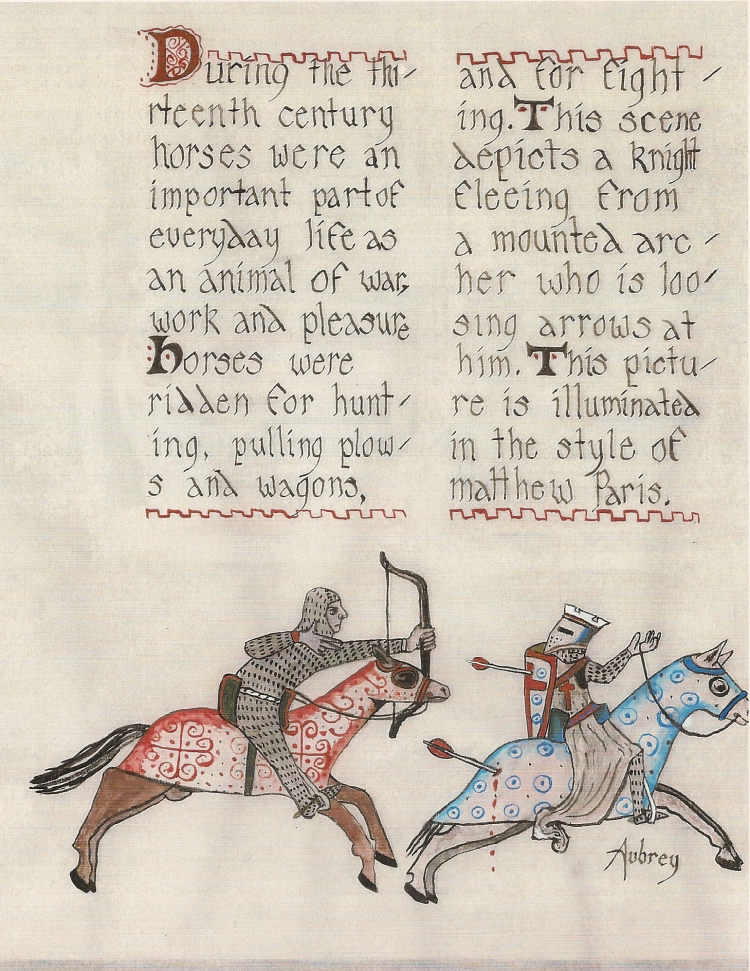 During the thi-
rteenth century
horses were an
important part of
everyday life as
an animal of war,
work and pleasure
horses were
ridden for hunt-
ing, pulling plow-
s and wagons,
and for fight-
ing. This scene
depicts a knight
fleeing from
a mounted arc-
her who is loo-
sing arrows at
him. This pictu-
re is illuminated
in the style of
matthew Paris.
Aubrey